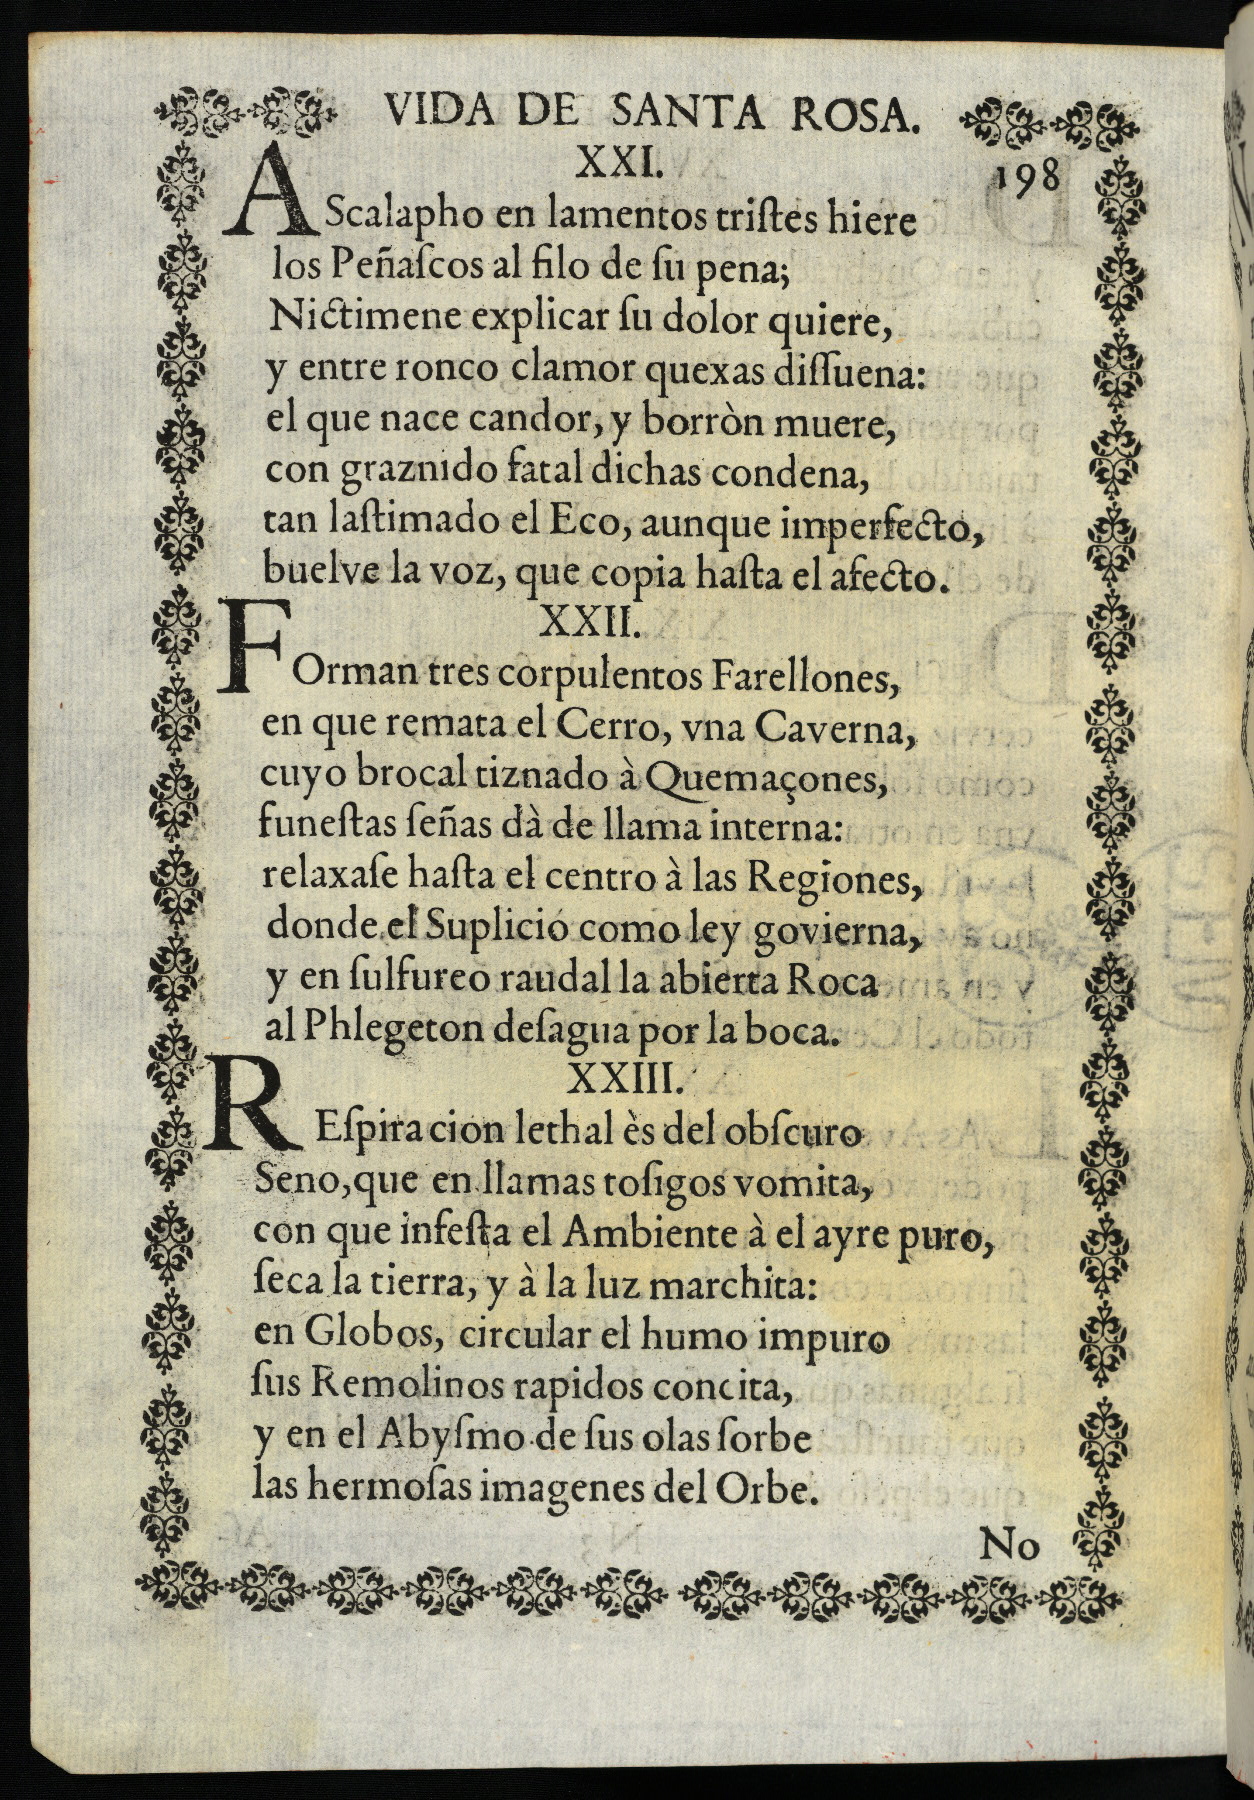 VIDA DE SANTA ROSA.
XXI.
198
AScalapho en lamentos triſtes hiere
los Peñaſcos al filo de ſu pena;
Nictimene explicar ſu dolor quiere,
y entre ronco clamor quexas diſſuena:
el que nace candor, y borròn muere,
con graznido fatal dichas condena,
tan laſtimado el Eco, aunque imperfecto,
buelve la voz, que copia haſta el afecto.
XXII.
FOrman tres corpulentos Farellones,
en que remata el Cerro, vna Caverna,
cuyo brocal tiznado à Quemaçones,
funeſtas ſeñas dà de llama interna:
relaxaſe haſta el centro à las Regiones,
donde el Suplicio como ley govierna,
y en ſulfureo raudal la abierta Roca
al Phlegeton deſagua por la boca.
XXIII.
REſpiracion lethal ès del obſcuro
Seno, que en llamas toſigos vomita,
con que infeſta el Ambiente à el ayre puro,
ſeca la tierra, y à la luz marchita:
en Globos, circular el humo impuro
ſus Remolinos rapidos concita,
y en el Abyſmo de ſus olas ſorbe
las hermoſas imagenes del Orbe.
No